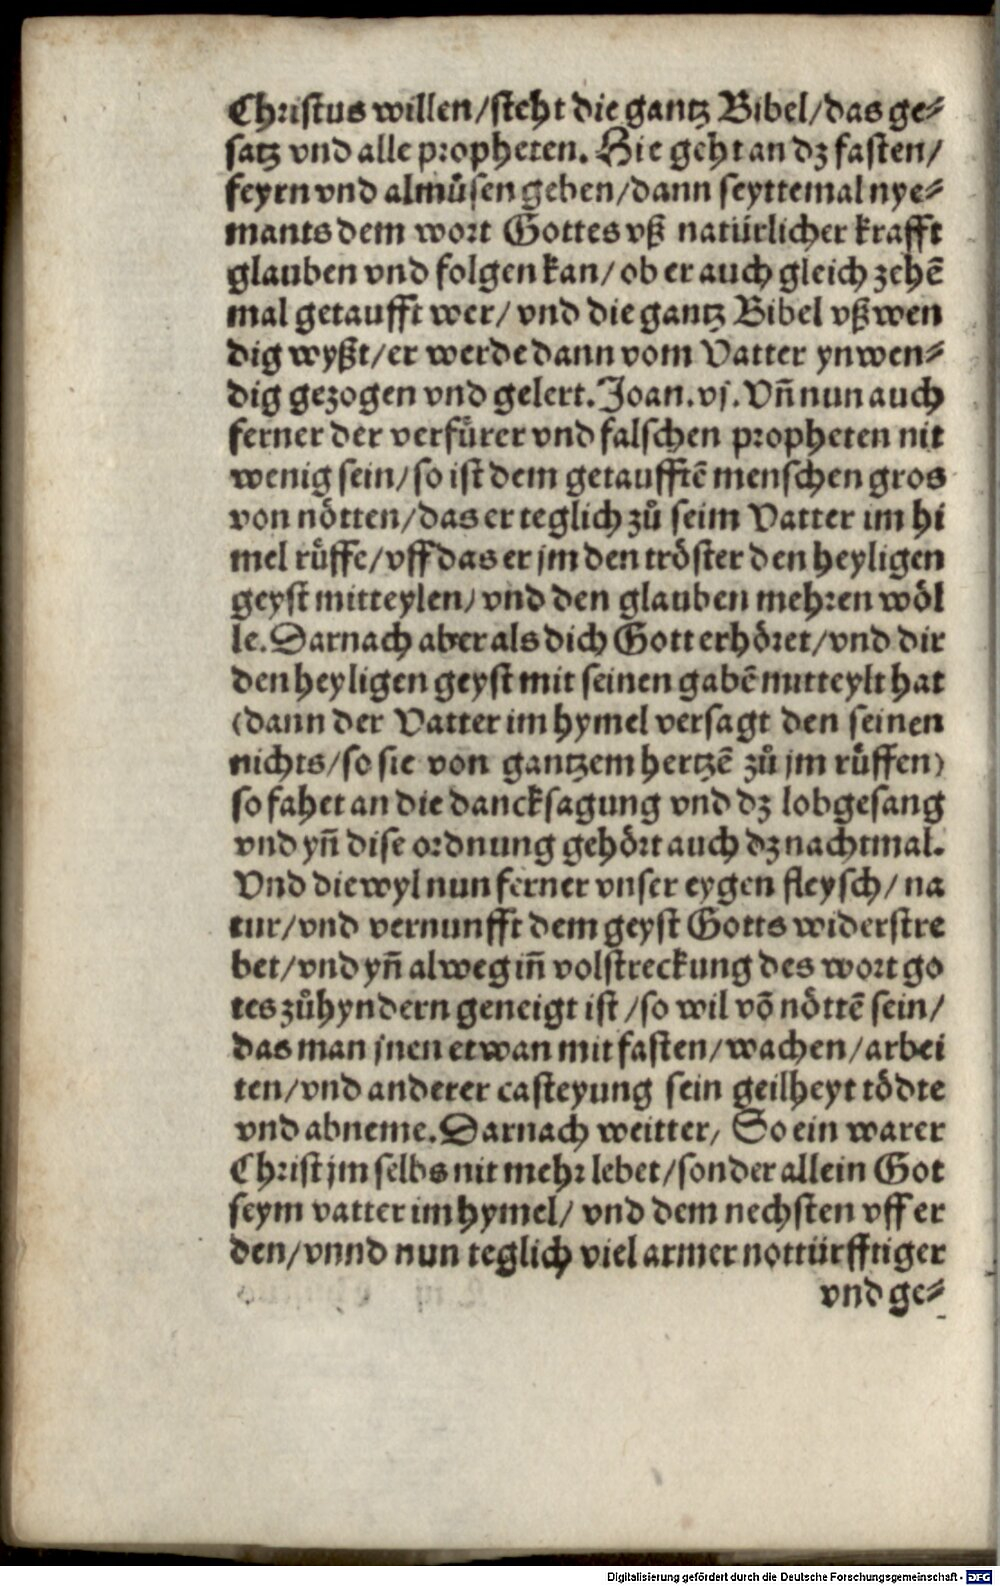 Christus willen/steht die gantz Bibel/das ge⸗
satz vnd alle propheten. Hie geht an dz fasten/
feyrn vnd almůsen geben/dann seyttemal nye⸗
mants dem wort Gottes vß natürlicher krafft
glauben vnd folgen kan/ob er auch gleich zehē
mal getaufft wer/vnd die gantz Bibel vßwen
dig wyßt/er werde dann vom Vatter ynwen⸗
dig gezogen vnd gelert. Joan. vj. Vñ nun auch
ferner der verfürer vnd falschen propheten nit
wenig sein/so ist dem getaufftē menschen gros
von nötten/das er teglich zů seim Vatter im hi
mel rüffe/vff das er jm den tröster den heyligen
geyst mitteylen/vnd den glauben mehren wöl
le. Darnach aber als dich Gott erhöret/vnd dir
den heyligen geyst mit seinen gabē mitteylt hat
(dann der Vatter im hymel versagt den seinen
nichts/so sie von gantzem hertzē zů jm rüffen)
so fahet an die dancksagung vnd dz lobgesang
vnd yñ dise ordnung gehört auch dz nachtmal.
Vnd die wyl nun ferner vnser eygen fleysch/na
tur/vnd vernunfft dem geyst Gotts widerstre
bet/vnd yñ alweg iñ volstreckung des wort go
tes zůhyndern geneigt ist/so wil vō nöttē sein/
das man jnen etwan mit fasten/wachen/arbei
ten/vnd anderer casteyung sein geilheyt tödte
vnd abneme. Darnach weitter/ So ein warer
Christ jm selbs nit mehr lebet/sonder allein Got
seym vatter im hymel/ vnd dem nechsten vff er
den/vnnd nun teglich viel armer nottürfftiger
vnd ge⸗
Digitalisierung gefördert durch die Deutsche Forschungsgemeinschaft - DFG